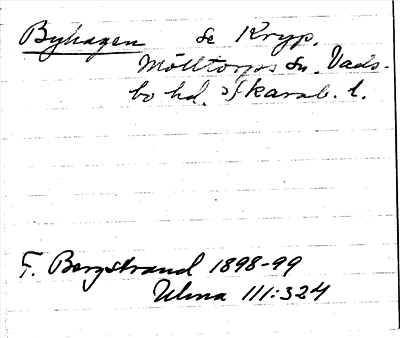 Byhagen se Kryp,
Mölltorps sn. Vads-
bo hd. Skarab. l.
F. Bergstrand 1898-99
Ulma 111:324